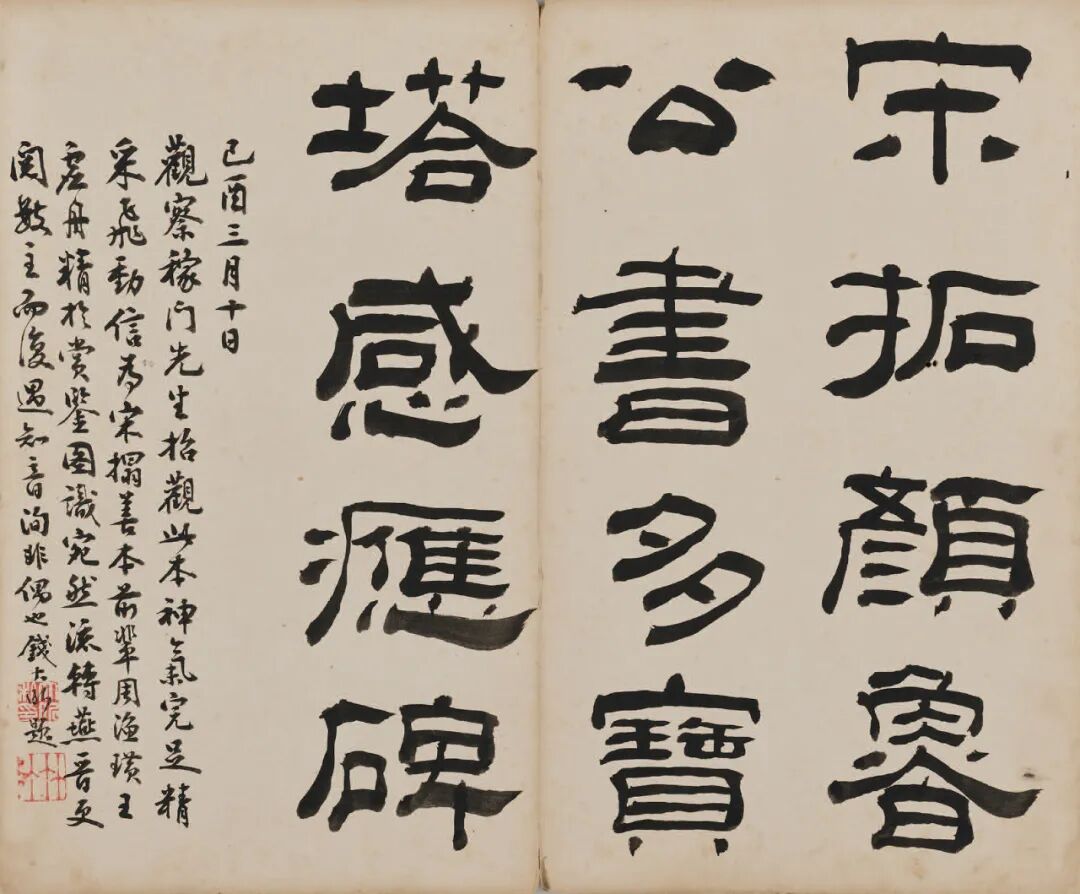 宋拓顏魯
公書多寶
塔感應碑
己酉三月十日
觀察稼門先生招觀此本神氣完足精
采飛動信為宋搨善本前輩周漁璜王
虛舟精於賞鑒圖識宛然流轉燕晉更
閱數主而復遇知音洵非偶也錢大昕題